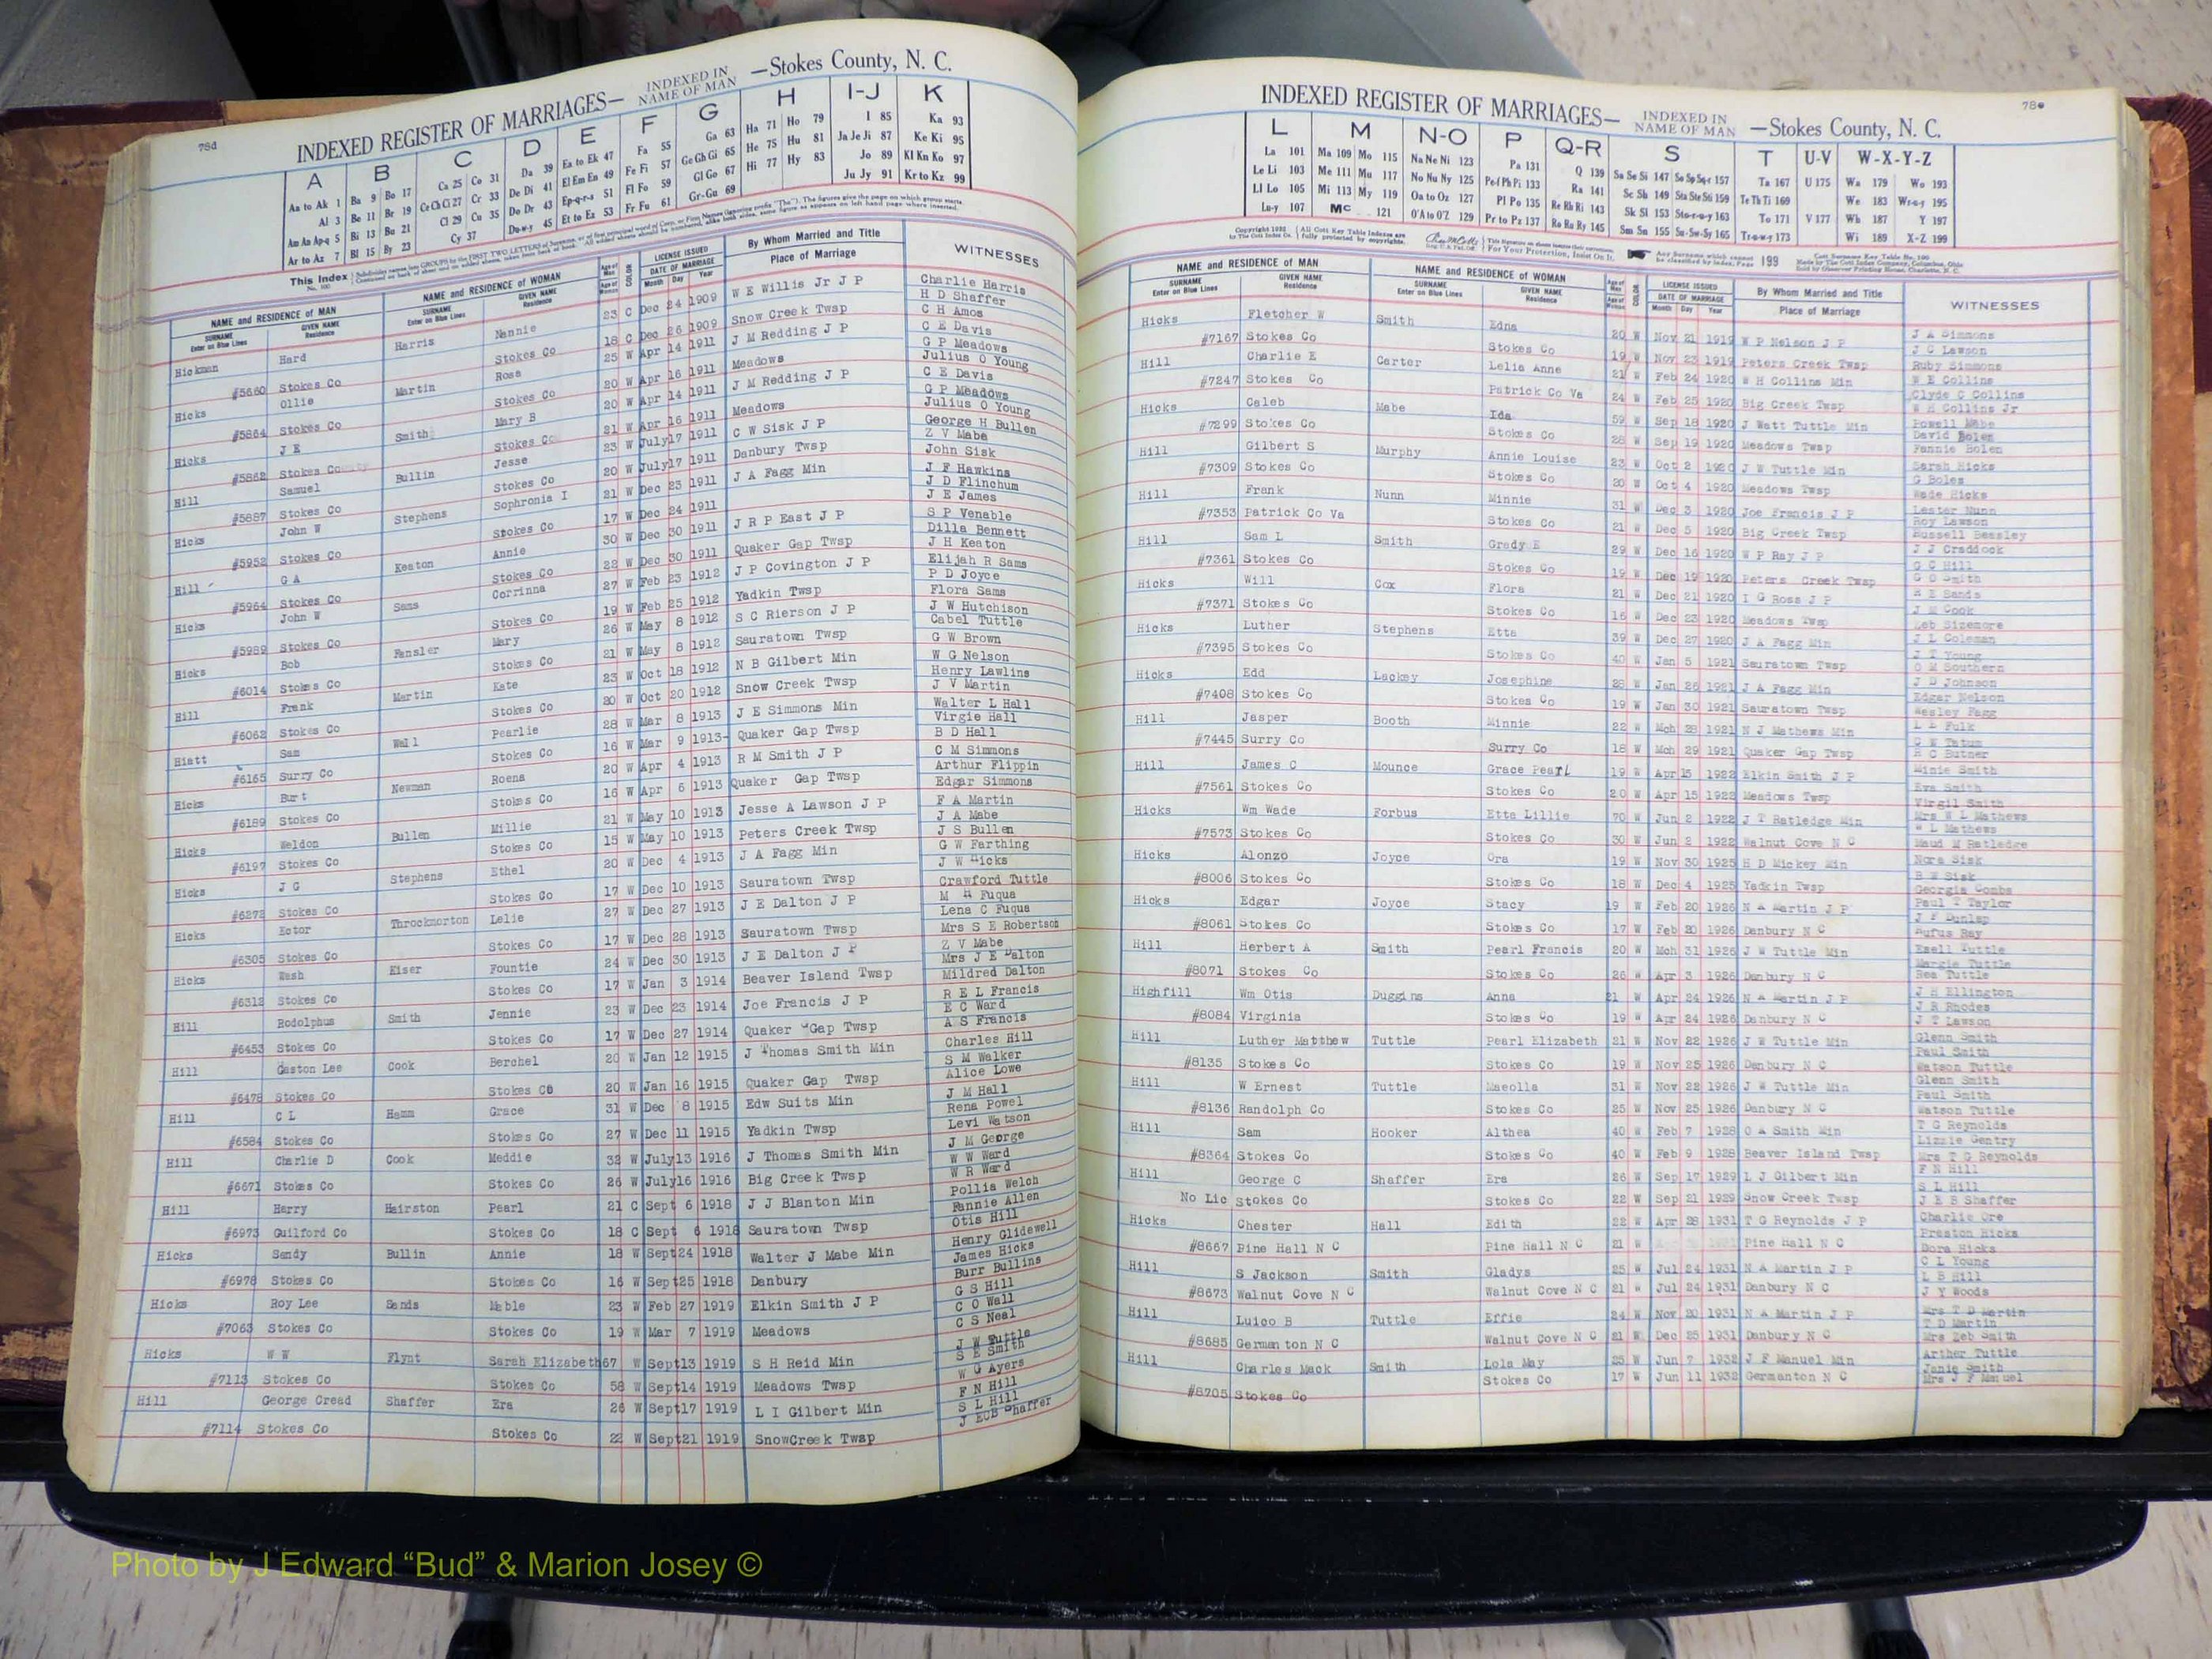 78d
INDEXED REGISTER OF MARRIAGES— INDEXED IN NAME OF MAN —Stokes County, N. C.
A B C D E F G H I-J K
Aa to Ak 1 Ba 9 Bo 17 Ca 25 Co 31 Da 39 Ea to Ek 47 Fa 55 Ga 63 Ha 71 Ho 79 I 85 Ka 93
Al 3 Be 11 Br 19 Ce Ch Ci 27 Cr 33 De Di 41 El Em En 49 Fe Fi 57 Ge Gh Gi 65 He 75 Hu 81 Ja Je Ji 87 Ke Ki 95
Am An Ap-q 5 Bi 13 Bu 21 Cl 29 Cu 35 Do Dr 43 Ep-q-r-s 51 Fl Fo 59 Gl Go 67 Hi 77 Hy 83 Jo 89 Kl Kn Ko 97
Ar to Az 7 Bl 15 By 23 Cy 37 Du-w-y 45 Et to Ez 53 Fr Fu 61 Gr-Gu 69 Ju Jy 91 Kr to Kz 99
NAME and RESIDENCE OF MAN NAME and RESIDENCE OF WOMAN LICENSE ISSUED By Whom Married and Title WITNESSES
SURNAME Enter on Blue Lines GIVEN NAME Residence SURNAME Enter on Blue Lines GIVEN NAME Residence COLOR DATE OF MARRIAGE Month Day Year Place of Marriage
Hickman Hard Harris Nannie 23 C Dec 24 1909 W E Willis Jr J P Charlie Harris
H D Shaffer
#5660 Stokes Co Stokes Co 18 C Dec 26 1909 Snow Creek Twsp C H Amos
Hicks Ollie Martin Rosa 25 W Apr 14 1911 J M Redding J P C E Davis
G P Meadows
#5864 Stokes Co Stokes Co 20 W Apr 16 1911 Meadows Julius O Young
Hicks J E Smith Mary B 20 W Apr 14 1911 J M Redding J P C E Davis
G P Meadows
#5862 Stokes County Stokes Co 21 W Apr 16 1911 Meadows Julius O Young
Hill Samuel Bullin Jesse 23 W July 17 1911 C W Sisk J P George H Bullen
Z V Mabe
#5887 Stokes Co Stokes Co 20 W July 17 1911 Danbury Twsp John Sisk
Hicks John W Stephens Sophronia I 21 W Dec 23 1911 J A Fagg Min J F Hawkins
J D Flinchum
#5952 Stokes Co Stokes Co 17 W Dec 24 1911 J E James
Hill G A Keaton Annie 30 W Dec 30 1911 J R P East J P S P Venable
Dilla Bennett
#5964 Stokes Co Stokes Co 22 W Dec 30 1911 Quaker Gap Twsp J H Keaton
Hicks John W Sams Corrinna 27 W Feb 23 1912 J P Covington J P Elijah R Sams
P D Joyce
#5989 Stokes Co Stokes Co 19 W Feb 25 1912 Yadkin Twsp Flora Sams
Hicks Bob Fansler Mary 26 W May 8 1912 S C Rierson J P J W Hutchison
Cabel Tuttle
#6014 Stokes Co Stokes Co 21 W May 8 1912 Sauratown Twsp G W Brown
Hill Frank Martin Kate 23 W Oct 18 1912 N B Gilbert Min W G Nelson
Henry Lawlins
#6062 Stokes Co Stokes Co 20 W Oct 20 1912 Snow Creek Twsp J V Martin
Hiatt Sam Wall Pearlie 28 W Mar 8 1913 J E Simmons Min Walter L Hall
Virgie Hall
#6165 Surry Co Stokes Co 16 W Mar 9 1913 Quaker Gap Twsp B D Hall
Hicks Burt Newman Roena 20 W Apr 4 1913 R M Smith J P C M Simmons
Arthur Flippin
#6189 Stokes Co Stokes Co 16 W Apr 6 1913 Quaker Gap Twsp Edgar Simmons
Hicks Weldon Bullen Millie 21 W May 10 1913 Jesse A Lawson J P F A Martin
J A Mabe
#6197 Stokes Co Stokes Co 15 W May 10 1913 Peters Creek Twsp J S Bullen
Hicks J G Stephens Ethel 20 W Dec 4 1913 J A Fagg Min G W Farthing
J W Hicks
#6272 Stokes Co Stokes Co 17 W Dec 10 1913 Sauratown Twsp Crawford Tuttle
Hicks Ector Throckmorton Lelie 27 W Dec 27 1913 J E Dalton J P M H Fuqua
Lena C Fuqua
#6305 Stokes Co Stokes Co 17 W Dec 28 1913 Sauratown Twsp Mrs S E Robertson
Hicks Wash Kiser Fountie 24 W Dec 30 1913 J E Dalton J P Z V Mabe
Mrs J E Dalton
#6312 Stokes Co Stokes Co 17 W Jan 3 1914 Beaver Island Twsp Mildred Dalton
Hill Rodolphus Smith Jennie 23 W Dec 23 1914 Joe Francis J P R E L Francis
E C Ward
#6453 Stokes Co Stokes Co 17 W Dec 27 1914 Quaker Gap Twsp A S Francis
Hill Gaston Lee Cook Berchel 20 W Jan 12 1915 J Thomas Smith Min Charles Hill
S M Walker
#6478 Stokes Co Stokes Co 20 W Jan 16 1915 Quaker Gap Twsp Alice Lowe
Hill C L Hamm Grace 31 W Dec 8 1915 Edw Suits Min J M Hall
Rena Powel
#6584 Stokes Co Stokes Co 27 W Dec 11 1915 Yadkin Twsp Levi Watson
Hill Charlie D Cook Meddie 32 W July 13 1916 J Thomas Smith Min J M George
W W Ward
#6671 Stokes Co Stokes Co 26 W July 16 1916 Big Creek Twsp W R Ward
Hill Harry Hairston Pearl 21 C Sept 6 1918 J J Blanton Min Pollia Welch
Fannie Allen
#6973 Guilford Co Stokes Co 18 C Sept 6 1918 Sauratown Twsp Otis Hill
Hicks Sandy Bullin Annie 18 W Sept 24 1918 Walter J Mabe Min Henry Glidewell
James Hicks
#6978 Stokes Co Stokes Co 16 W Sept 25 1918 Danbury Burr Bullins
Hicks Roy Lee Sands Mable 23 W Feb 27 1919 Elkin Smith J P G S Hill
C O Wall
#7063 Stokes Co Stokes Co 19 W Mar 7 1919 Meadows C S Neal
Hicks W W Flynt Sarah Elizabeth 67 W Sept 13 1919 S H Reid Min J W Tuttle
S E Smith
#7113 Stokes Co Stokes Co 58 W Sept 14 1919 Meadows Twsp W G Ayers
Hill George Cread Shaffer Era 26 W Sept 17 1919 L I Gilbert Min F N Hill
S L Hill
#7114 Stokes Co Stokes Co 22 W Sept 21 1919 SnowCreek Twsp J ECB Shaffer
78e
INDEXED REGISTER OF MARRIAGES— INDEXED IN NAME OF MAN —Stokes County, N. C.
L M N-O P Q-R S T U-V W-X-Y-Z
La 101 Ma 109 Mo 115 Na Ne Ni 123 Pa 131 Q 139 Sa Se Si 147 So Sp Sq-r 157 Ta 167 U 175 Wa 179 Wo 193
Le Li 103 Me 111 Mu 117 No Nu Ny 125 Pe-f Ph Pi 133 Ra 141 Sc Sh 149 Sta Ste Sti 159 Te Th Ti 169 We 183 Wr-u-y 195
Ll Lo 105 Mi 113 My 119 Oa to Oz 127 Pl Po 135 Re Rh Ri 143 Sk Sl 153 Sto-r-u-y 163 To 171 V 177 Wh 187 Y 197
Lu-y 107 Mc 121 O'A to O'Z 129 Pr to Pz 137 Ro Ru Ry 145 Sm Sn 155 Su-Sw-Sy 165 Tr-u-w-y 173 Wi 189 X-Z 199
NAME and RESIDENCE OF MAN NAME and RESIDENCE OF WOMAN LICENSE ISSUED By Whom Married and Title WITNESSES
SURNAME Enter on Blue Lines GIVEN NAME Residence SURNAME Enter on Blue Lines GIVEN NAME Residence COLOR DATE OF MARRIAGE Month Day Year Place of Marriage
Hicks Fletcher W Smith Edna 20 W Nov 21 1919 W P Nelson J P J A Simmons
J C Lawson
#7167 Stokes Co Stokes Co 19 W Nov 23 1919 Peters Creek Twsp Ruby Simmons
Hill Charlie E Carter Lelia Anne 21 W Feb 24 1920 W H Collins Min W E Collins
Clyde C Collins
#7247 Stokes Co Patrick Co Va 24 W Feb 25 1920 Big Creek Twsp W H Collins Jr
Hicks Caleb Mabe Ida 59 W Sep 18 1920 J Watt Tuttle Min Powell Mabe
David Bolen
#7299 Stokes Co Stokes Co 28 W Sep 19 1920 Meadows Twsp Fannie Bolen
Hill Gilbert S Murphy Annie Louise 23 W Oct 2 1920 J W Tuttle Min Sarah Hicks
G Boles
#7309 Stokes Co Stokes Co 20 W Oct 4 1920 Meadows Twsp Wade Hicks
Hill Frank Nunn Minnie 31 W Dec 3 1920 Joe Francis J P Lester Nunn
Roy Lawson
#7353 Patrick Co Va Stokes Co 21 W Dec 5 1920 Big Creek Twsp Russell Beasley
Hill Sam L Smith Grady E 29 W Dec 16 1920 W P Ray J P J J Craddock
G C Hill
#7361 Stokes Co Stokes Co 19 W Dec 19 1920 Peters Creek Twsp G O Smith
Hicks Will Cox Flora 21 W Dec 21 1920 I G Ross J P Sands
J M Cook
#7371 Stokes Co Stokes Co 16 W Dec 23 1920 Meadows Twsp Zeb Sizemore
Hicks Luther Stephens Etta 39 W Dec 27 1920 J A Fagg Min J L Coleman
J T Young
#7395 Stokes Co Stokes Co 40 W Jan 5 1921 Sauratown Twsp O M Southern
Hicks Edd Lackey Josephine 28 W Jan 26 1921 J A Fagg Min J D Johnson
Edgar Nelson
#7408 Stokes Co Stokes Co 19 W Jan 30 1921 Sauratown Twsp Wesley Fagg
Hill Jasper Booth Minnie 22 W Mch 28 1921 N J Mathews Min Fulk
G W Tatum
#7445 Surry Co Surry Co 18 W Mch 29 1921 Quaker Gap Twsp H C Butner
Hill James C Mounce Grace Pearl 19 W Apr 15 1922 Elkin Smith J P Minie Smith
Eva Smith
#7561 Stokes Co Stokes Co 20 W Apr 15 1922 Meadows Twsp Virgil Smith
Hicks Wm Wade Forbus Etta Lillie 70 W Jun 2 1922 J T Ratledge Min Mrs W L Mathews
W L Mathews
#7573 Stokes Co Stokes Co 30 W Jun 2 1922 Walnut Cove N C Maud M Ratledge
Hicks Alonzo Joyce Ora 19 W Nov 30 1925 H D Mickey Min Nora Sisk
B W Sisk
#8006 Stokes Co Stokes Co 18 W Dec 4 1925 Yadkin Twsp Georgia Combs
Hicks Edgar Joyce Stacy 19 W Feb 20 1926 N A Martin J P Paul T Taylor
J F Dunlap
#8061 Stokes Co Stokes Co 17 W Feb 20 1926 Danbury N C Rufus Ray
Hill Herbert A Smith Pearl Francis 20 W Mch 31 1926 J W Tuttle Min Ezell Tuttle
Margie Tuttle
#8071 Stokes Co Stokes Co 26 W Apr 3 1926 Danbury N C Rea Tuttle
Highfill Wm Otis Duggins Anna 21 W Apr 24 1926 N A Martin J P J H Ellington
J R Rhodes
#8084 Virginia Stokes Co 19 W Apr 24 1926 Danbury N C J T Lawson
Hill Luther Matthew Tuttle Pearl Elizabeth 21 W Nov 22 1926 J W Tuttle Min Glenn Smith
Paul Smith
#8135 Stokes Co Stokes Co 19 W Nov 25 1926 Danbury N C Watson Tuttle
Hill W Ernest Tuttle Maeolla 31 W Nov 22 1926 J W Tuttle Min Glenn Smith
Paul Smith
#8136 Randolph Co Stokes Co 25 W Nov 25 1926 Danbury N C Watson Tuttle
Hill Sam Hooker Althea 40 W Feb 7 1928 O A Smith Min T G Reynolds
Lizzie Gentry
#8364 Stokes Co Stokes Co 40 W Feb 9 1928 Beaver Island Twsp Mrs T G Reynolds
Hill George C Shaffer Era 26 W Sep 17 1929 L J Gilbert Min F N Hill
S L Hill
No Lic Stokes Co Stokes Co 22 W Sep 21 1929 Snow Creek Twsp J E B Shaffer
Hicks Chester Hall Edith 22 W Apr 28 1931 T G Reynolds J P Charlie Ore
Preston Hicks
#8667 Pine Hall N C Pine Hall N C 21 W Pine Hall N C Dora Hicks
Hill S Jackson Smith Gladys 25 W Jul 24 1931 N A Martin J P C L Young
L B Hill
#8673 Walnut Cove N C Walnut Cove N C 21 W Jul 24 1931 Danbury N C J Y Woods
Hill Luico B Tuttle Effie 24 W Nov 20 1931 N A Martin J P Mrs T D Martin
T D Martin
#8685 Germanton N C Walnut Cove N C 21 W Dec 25 1931 Danbury N C Mrs Zeb Smith
Hill Charles Mack Smith Lola May 25 W Jun 7 1932 J F Manuel Min Arther Tuttle
Janie Smith
#8705 Stokes Co Stokes Co 17 W Jun 11 1932 Germanton N C Mrs J F Manuel
Photo by J Edward “Bud” & Marion Josey ©